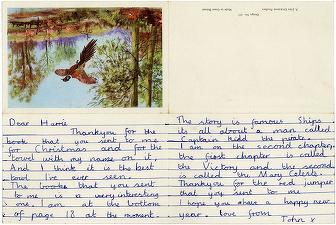 Dear Harrie
Thankyou for the
book that you sent to me
for Christmas and for the
towel with my name on it,
And I think it is the best
towl I've ever seen.
The books that you sent
to me is a very interesting
one, I am at the bottom
of page 18 at the moment.
The story is famous Ships
its all about a man called
Captain Kidd the pirate.
I am on the second chapter,
the first chapter is called
the Victory and the second
is called the Mary Celeste.
Thankyou for the red jumper
that you sent to me
I hope you have a happy new
year. love from
John x